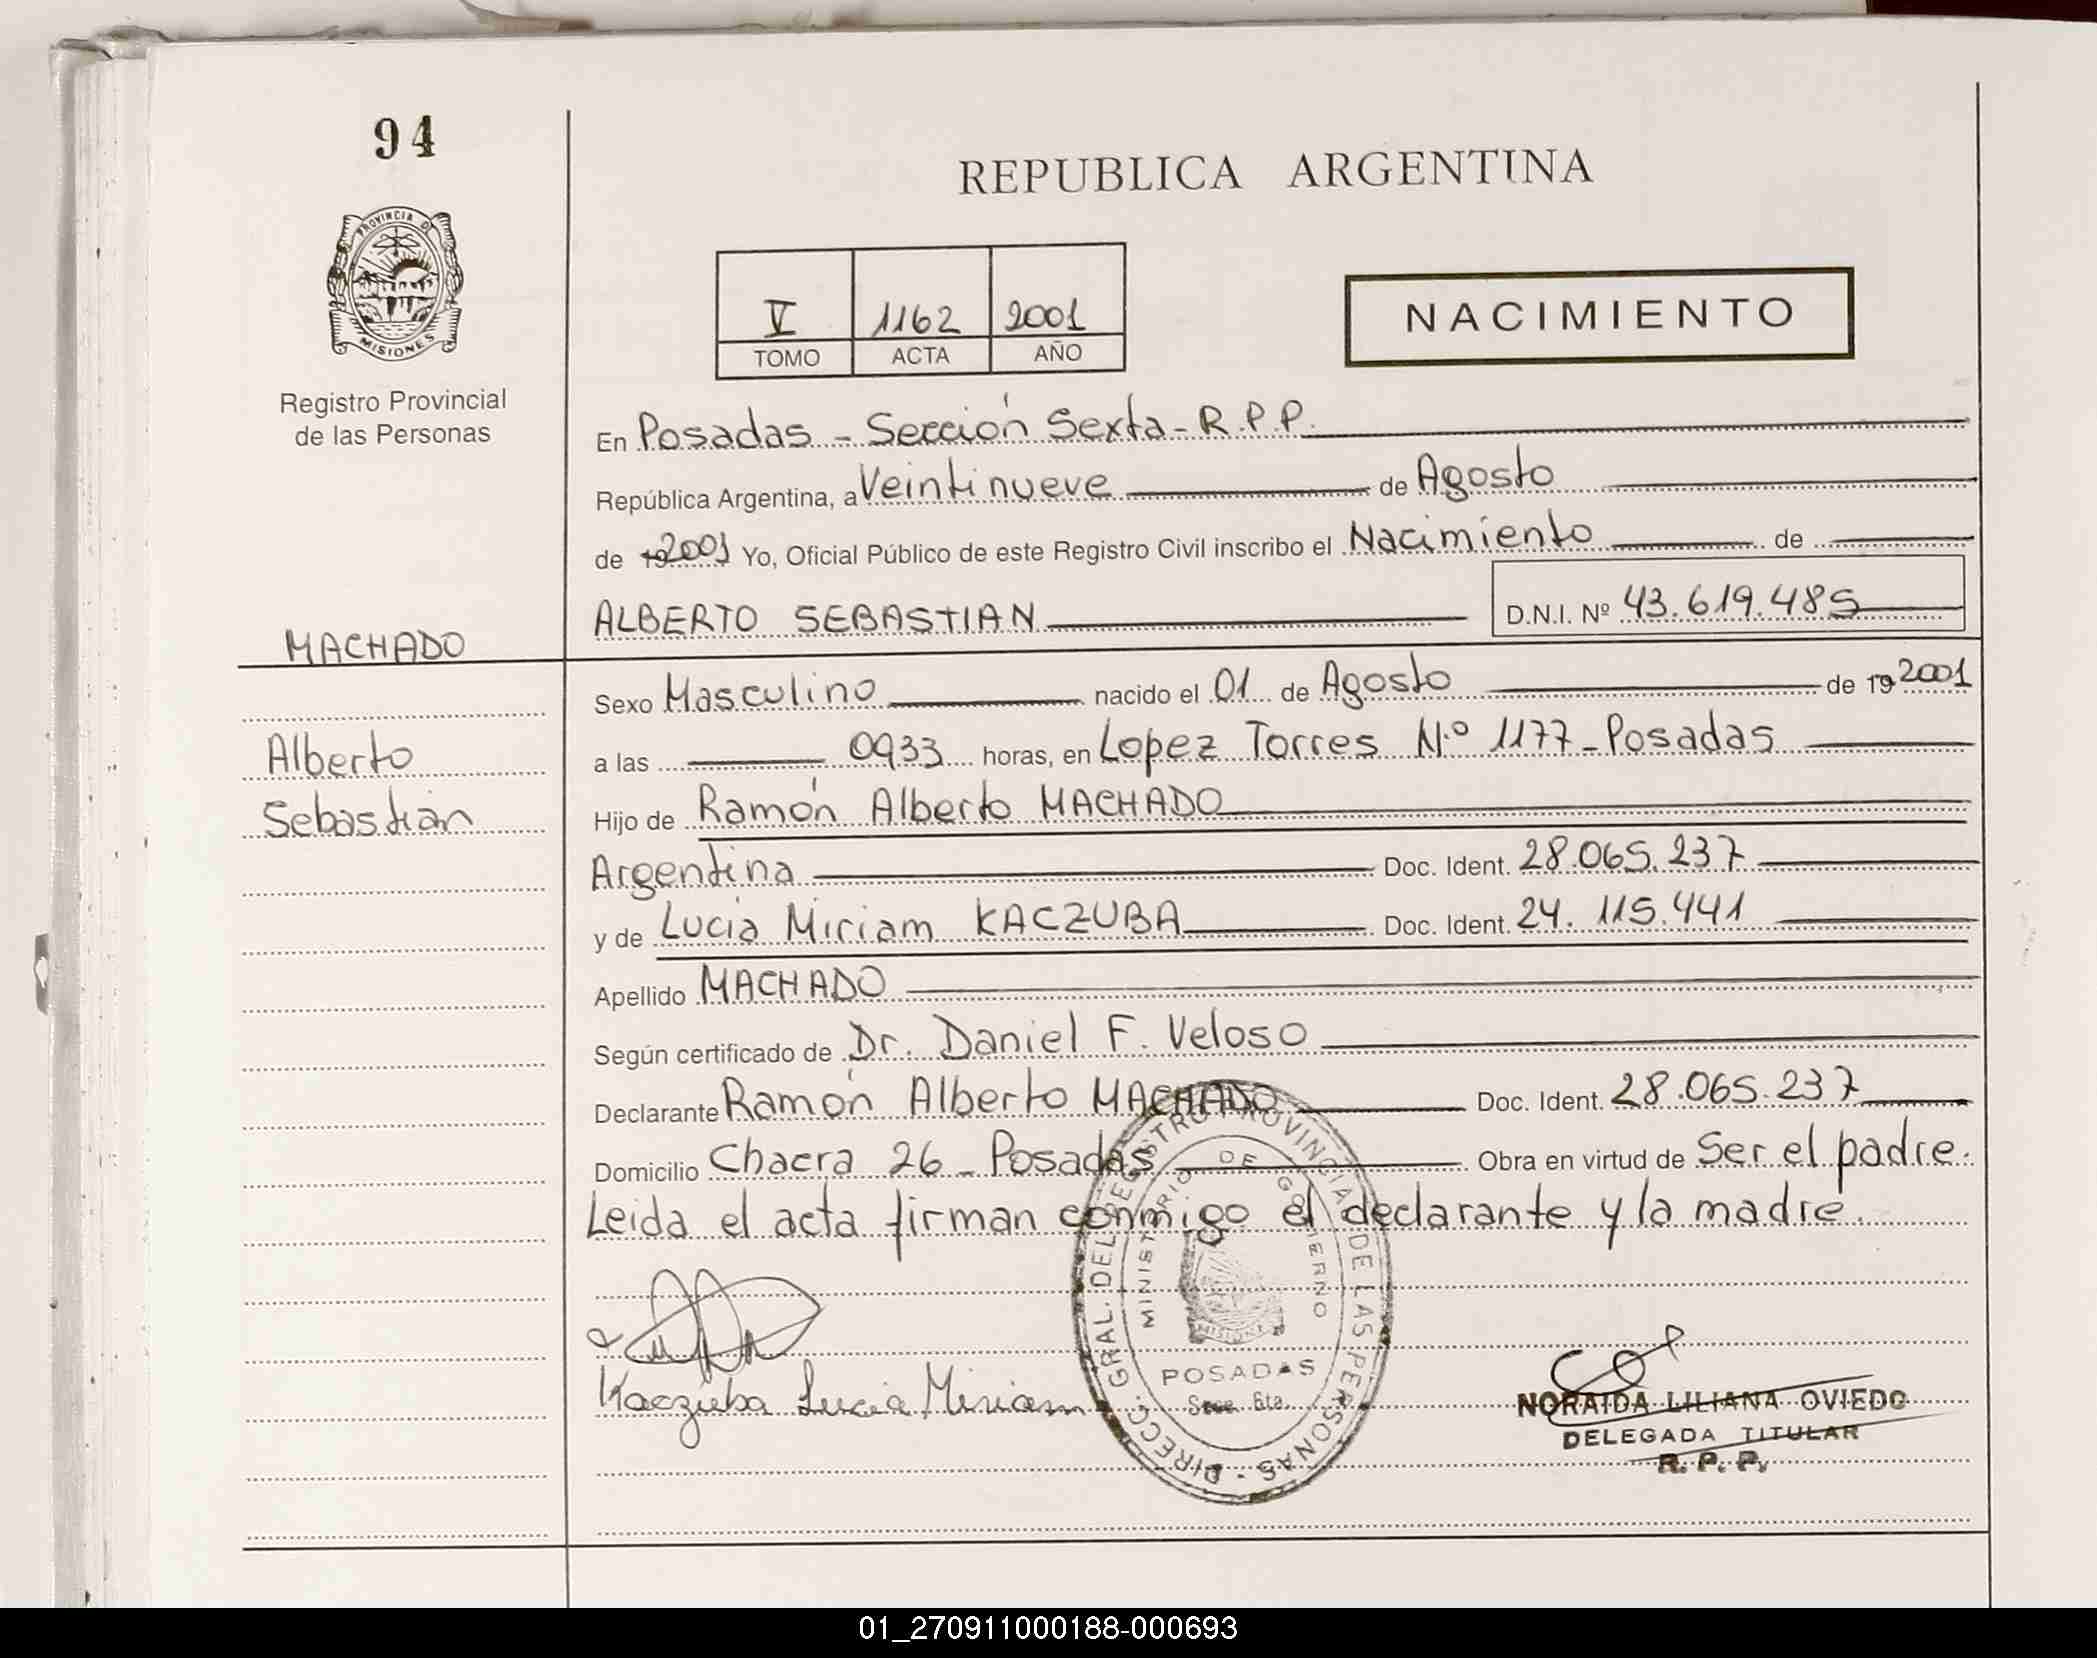 94
PROVINCIA DE
MISIONES
Registro Provincial
de las Personas
MACHADO
Alberto
Sebastián
REPUBLICA ARGENTINA
V 1162 2001
TOMO ACTA AÑO
NACIMIENTO
En Posadas - Sección Sexta - R.P.P.
República Argentina, a Veintinueve de Agosto
de 19 2001 Yo, Oficial Público de este Registro Civil inscribo el Nacimiento de
ALBERTO SEBASTIAN D.N.I. Nº 43.619.485
Sexo Masculino nacido el 01 de Agosto de 19 2001
a las 0933 horas, en Lopez Torres N.º 1177 - Posadas
Hijo de Ramón Alberto MACHADO
Argentina Doc. Ident. 28.065.237
y de Lucia Miriam KACZUBA Doc. Ident. 24.115.441
Apellido MACHADO
Según certificado de Dr. Daniel F. Veloso
Declarante Ramón Alberto MACHADO Doc. Ident. 28.065.237
Domicilio Chacra 26 - Posadas Obra en virtud de Ser el padre.
Leida el acta firman conmigo el declarante y la madre.
Kaczuba Lucia Miriam
DIRECC. GRAL. DEL REGISTRO PROVINCIAL DE LAS PERSONAS
MINISTERIO DE GOBIERNO
MISIONES
POSADAS
Secc. 6ta.
NORAIDA LILIANA OVIEDO
DELEGADA TITULAR
R. P. P.
01_270911000188-000693